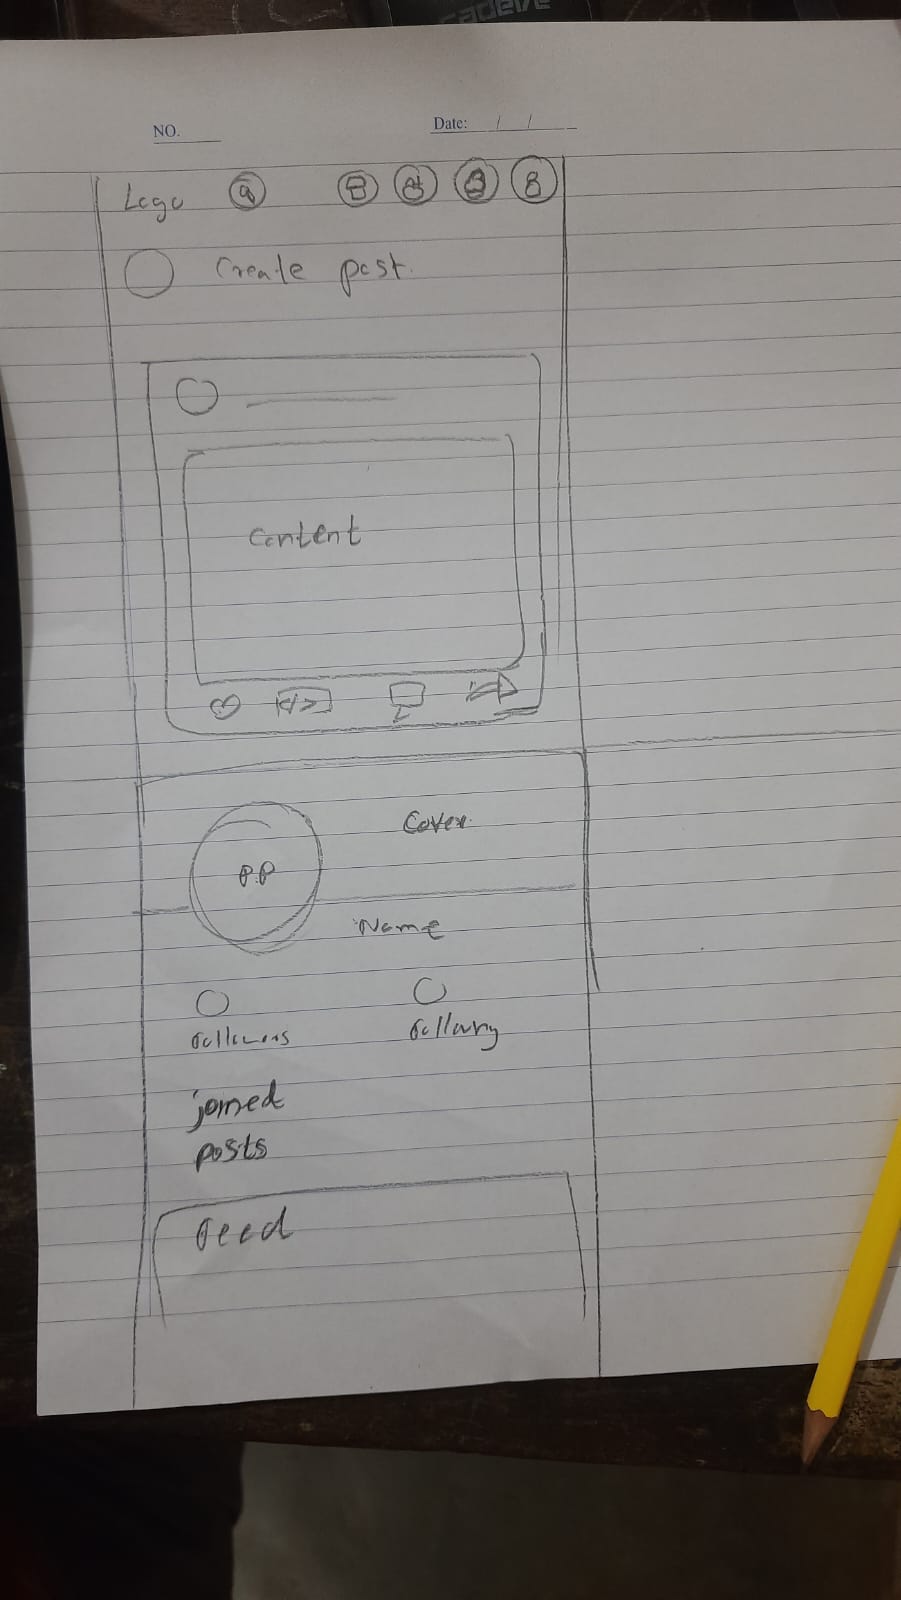 NO. Date: / /
Logo
Create post.
Content
</>
Cover
P.P
Name
followers following
joined
posts
feed